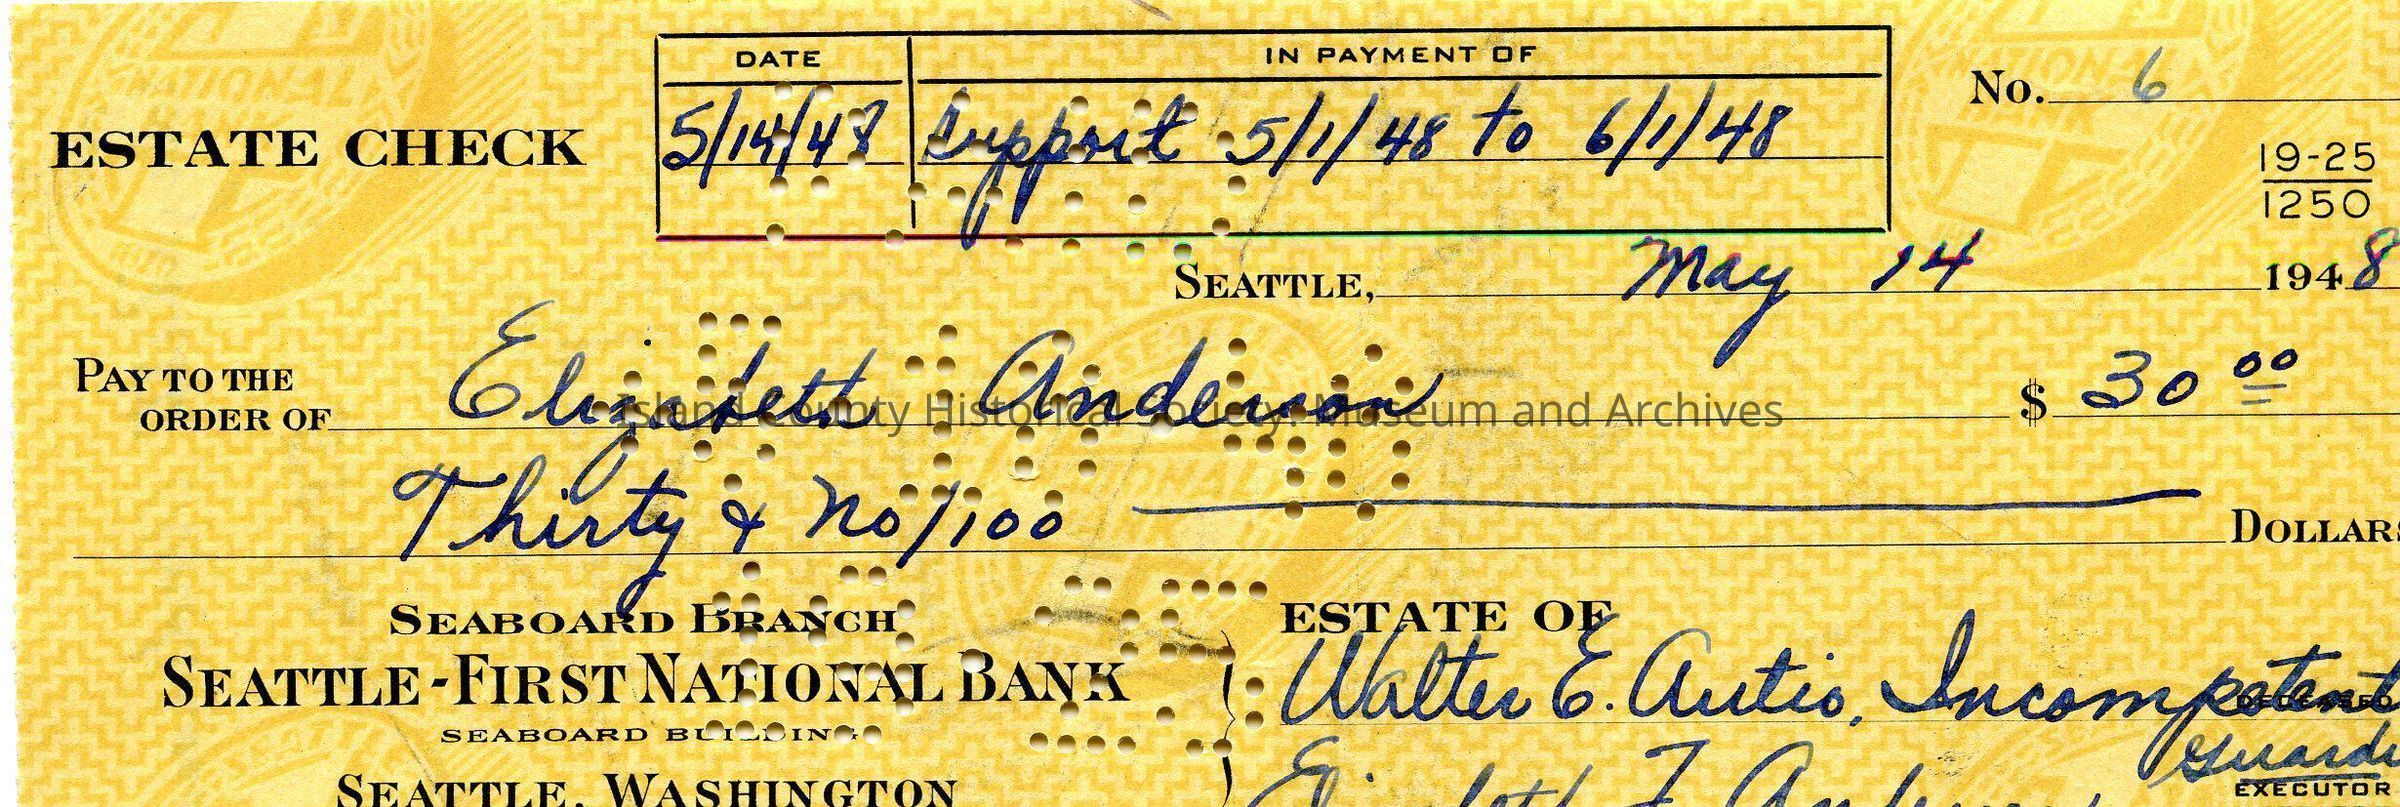 DATE IN PAYMENT OF
No. 6
5/14/48 Support 5/1/48 to 6/1/48
ESTATE CHECK
19-25
1250
SEATTLE, May 14 1948
PAY TO THE
ORDER OF Elizabeth Anderson $ 30 00
Island County Historical Society: Museum and Archives
Thirty & no/100 DOLLARS
SEABOARD BRANCH
SEATTLE-FIRST NATIONAL BANK
SEABOARD BUILDING
SEATTLE, WASHINGTON
ESTATE OF
Walter E. Autio, Incompetent
DECEASED
Guardi
EXECUTOR
Elizabeth F. Anderson